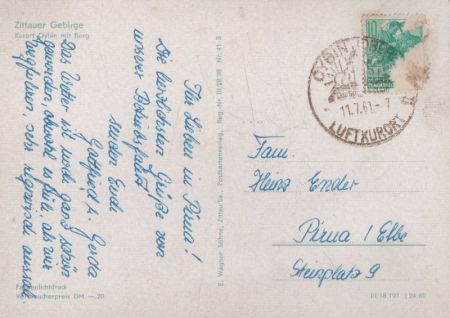 Zittauer Gebirge
Kurort Oybin mit Berg
Ihr Lieben in Pirna!
Die herzlichsten Grüße von
unserer Betriebsfahrt
senden Euch
Gottfried u. Gerda
Das Wetter ist noch ganz schön
geworden, obwohl es früh, als wir
wegfuhren, sehr regnerisch aussah.
Verbraucherpreis DM —.20
E. Wagner Söhne, Zittau/Sa. Postkartenverlag, Reg.-Nr. III/28/38 Nr. 41 B
OYBIN
11.7.61.-7
LUFTKURORT
10
Fam.
Heinz Ender
Pirna / Elbe
Steinplatz 9
III/18 197